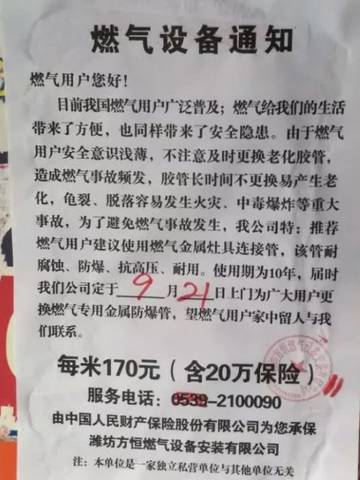 燃气设备通知
燃气用户您好！
目前我国燃气用户广泛普及；燃气给我们的生活
带来了方便，也同样带来了安全隐患。由于燃气
用户安全意识浅薄，不注意及时更换老化胶管，
造成燃气事故频发，胶管长时间不更换易产生老
化，龟裂、脱落容易发生火灾、中毒爆炸等重大
事故，为了避免燃气事故发生，我公司特：推荐
燃气用户建议使用燃气金属灶具连接管，该管耐
腐蚀、防爆、抗高压、耐用。使用期为10年，届时
我们公司定于 9 月 21 日上门为广大用户更
换燃气专用金属防爆管，望燃气用户家中留人与我
们联系。
每米170元（含20万保险）
服务电话：0539-2100090
由中国人民财产保险股份有限公司为您承保
潍坊方恒燃气设备安装有限公司
注：本单位是一家独立私营单位与其他单位无关